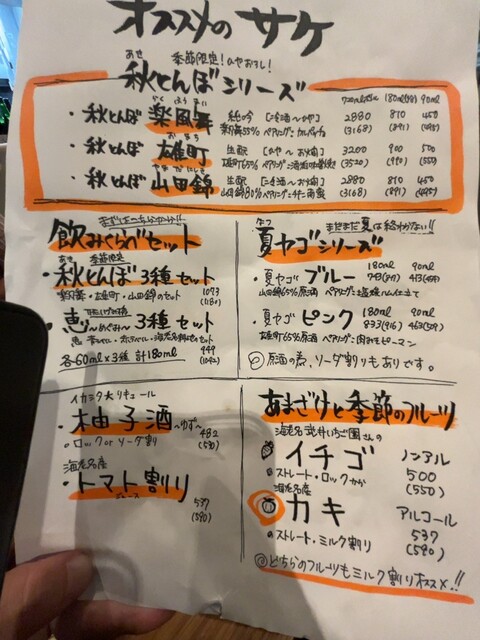 オススメの サケ
あき 季節限定！ひやおろし！
秋とんぼシリーズ
720mlボトル 180ml(1合) 90ml
らくふうまい
・秋とんぼ 楽風舞 純吟 2880 810 450
楽風舞55% ペアリング:カルパッチョ (3168) (891) (495)
おまち
・秋とんぼ 雄町 生酛 3200 900 500
雄町65% ペアリング: (3520) (990) (550)
やまだにしき
・秋とんぼ 山田錦 生酛 2880 810 450
山田錦80% ペアリング: (3168) (891) (495)
飲みくらべセット
あき 季節限定
・秋とんぼ 3種セット
楽風舞・雄町・山田錦のセット 1073
(1180)
・恵〜めぐみ〜 3種セット
各60ml×3種 計180ml 949
まだまだ夏は終わらない!!
なつ
夏ヤゴシリーズ
180ml 90ml
・夏ヤゴ ブルー
山田錦65%原酒 ペアリング:塩焼
180ml 90ml
・夏ヤゴ ピンク 833(916) 463(509)
ペアリング:肉みそピーマン
◎原酒の為、ソーダ割りもありです。
イカシタ大人リキュール
・柚子酒 〜ゆず〜 482
ロック or ソーダ割り (530)
海老名産
・トマト割り
ジュース 537
(590)
あまざけと季節のフルーツ
海老名 武井いちご園さんの
イチゴ ノンアル
・ストレート・ロック 500
(550)
海老名産
カキ アルコール
・ストレート、ミルク割り 537
(590)
◎どちらのフルーツもミルク割りオススメ!!